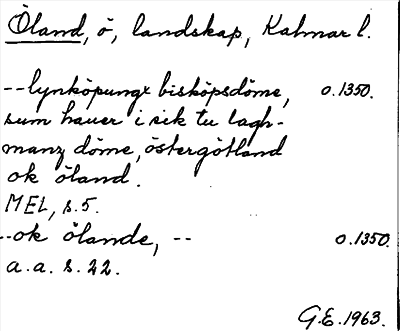 Öland, ö, landskap, Kalmar l.
--lynköpungx bisköpsdöme, o.1350.
sum hauer i sik tu lagh-
manz döme, östergötland
ok öland.
MEL, s.5.
--ok ölande, -- o.1350.
a.a. s.22.
G.E.1963.